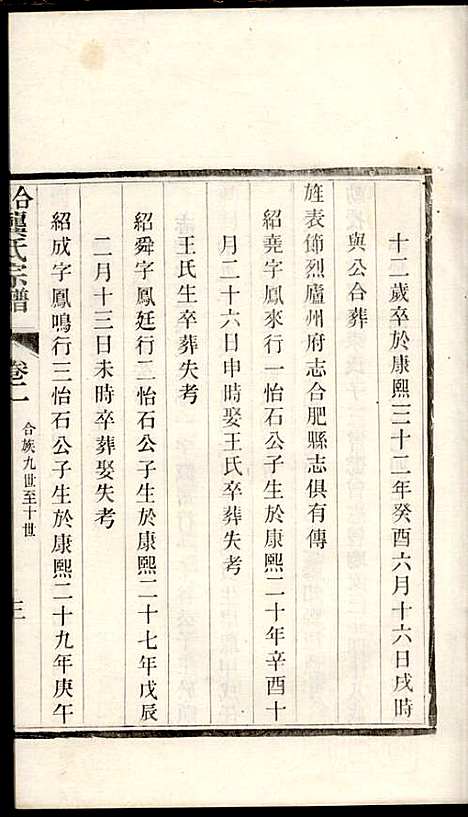 十二歲卒於康熙三十二年癸酉六月十六日戌時
與公合葬
旌表節烈廬州府志合肥縣志俱有傳
紹堯字鳳來行一怡石公子生於康熙二十年辛酉十
月二十六日申時娶王氏卒葬失考
王氏生卒葬失考
紹舜字鳳廷行二怡石公子生於康熙二十七年戊辰
二月十三日未時卒葬娶失考
紹成字鳳鳴行三怡石公子生於康熙二十九年庚午
合龔氏宗譜
卷二
合族九世至十世
三